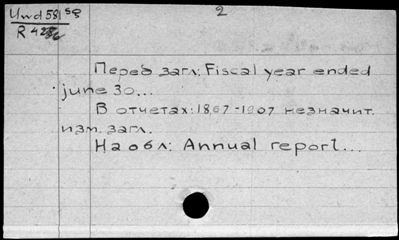 Uwd 581 sq 2
R 42
Перед загл: Fiscal year ended
june 30...
В отчетах: 1867-1907 незначит.
изм. загл.
На обл: Annual report...